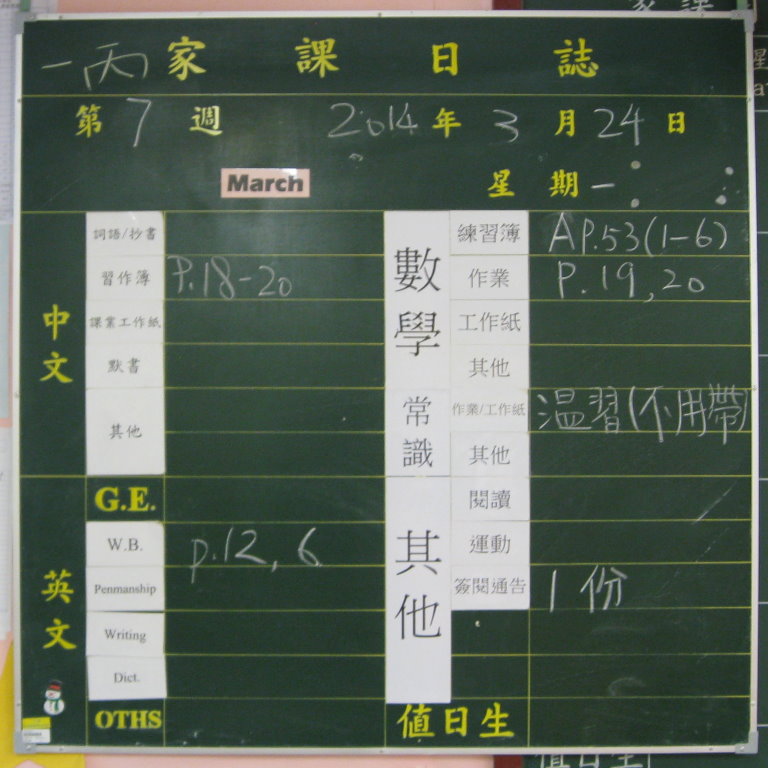 一丙 家課日誌
第 7 週 2014 年 3 月 24 日
March 星期 一
中文
詞語/抄書
習作簿 P.18-20
課業工作紙
默書
其他
G.E.
英文
W.B. p.12, 6
Penmanship
Writing
Dict.
OTHS
數學
練習簿 AP.53(1-6)
作業 P.19,20
工作紙
其他
常識
作業/工作紙 温習(不用帶)
其他
其他
閱讀
運動
簽閱通告 1份
值日生